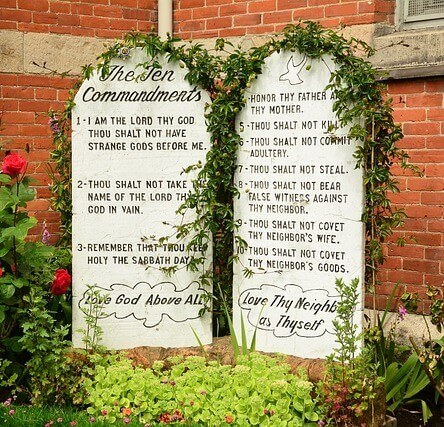 The Ten
Commandments
1-I AM THE LORD THY GOD
THOU SHALT NOT HAVE
STRANGE GODS BEFORE ME.
2-THOU SHALT NOT TAKE THE
NAME OF THE LORD THY
GOD IN VAIN.
3-REMEMBER THAT THOU KEEP
HOLY THE SABBATH DAY.
Love God Above All
-HONOR THY FATHER
THY MOTHER.
5-THOU SHALT NOT KILL
6-THOU SHALT NOT COMMIT
ADULTERY.
7-THOU SHALT NOT STEAL.
8-THOU SHALT NOT BEAR
FALSE WITNESS AGAINST
THY NEIGHBOR.
9-THOU SHALT NOT COVET
THY NEIGHBOR'S WIFE.
10-THOU SHALT NOT COVET
THY NEIGHBOR'S GOODS.
Love Thy Neighb
as Thyself